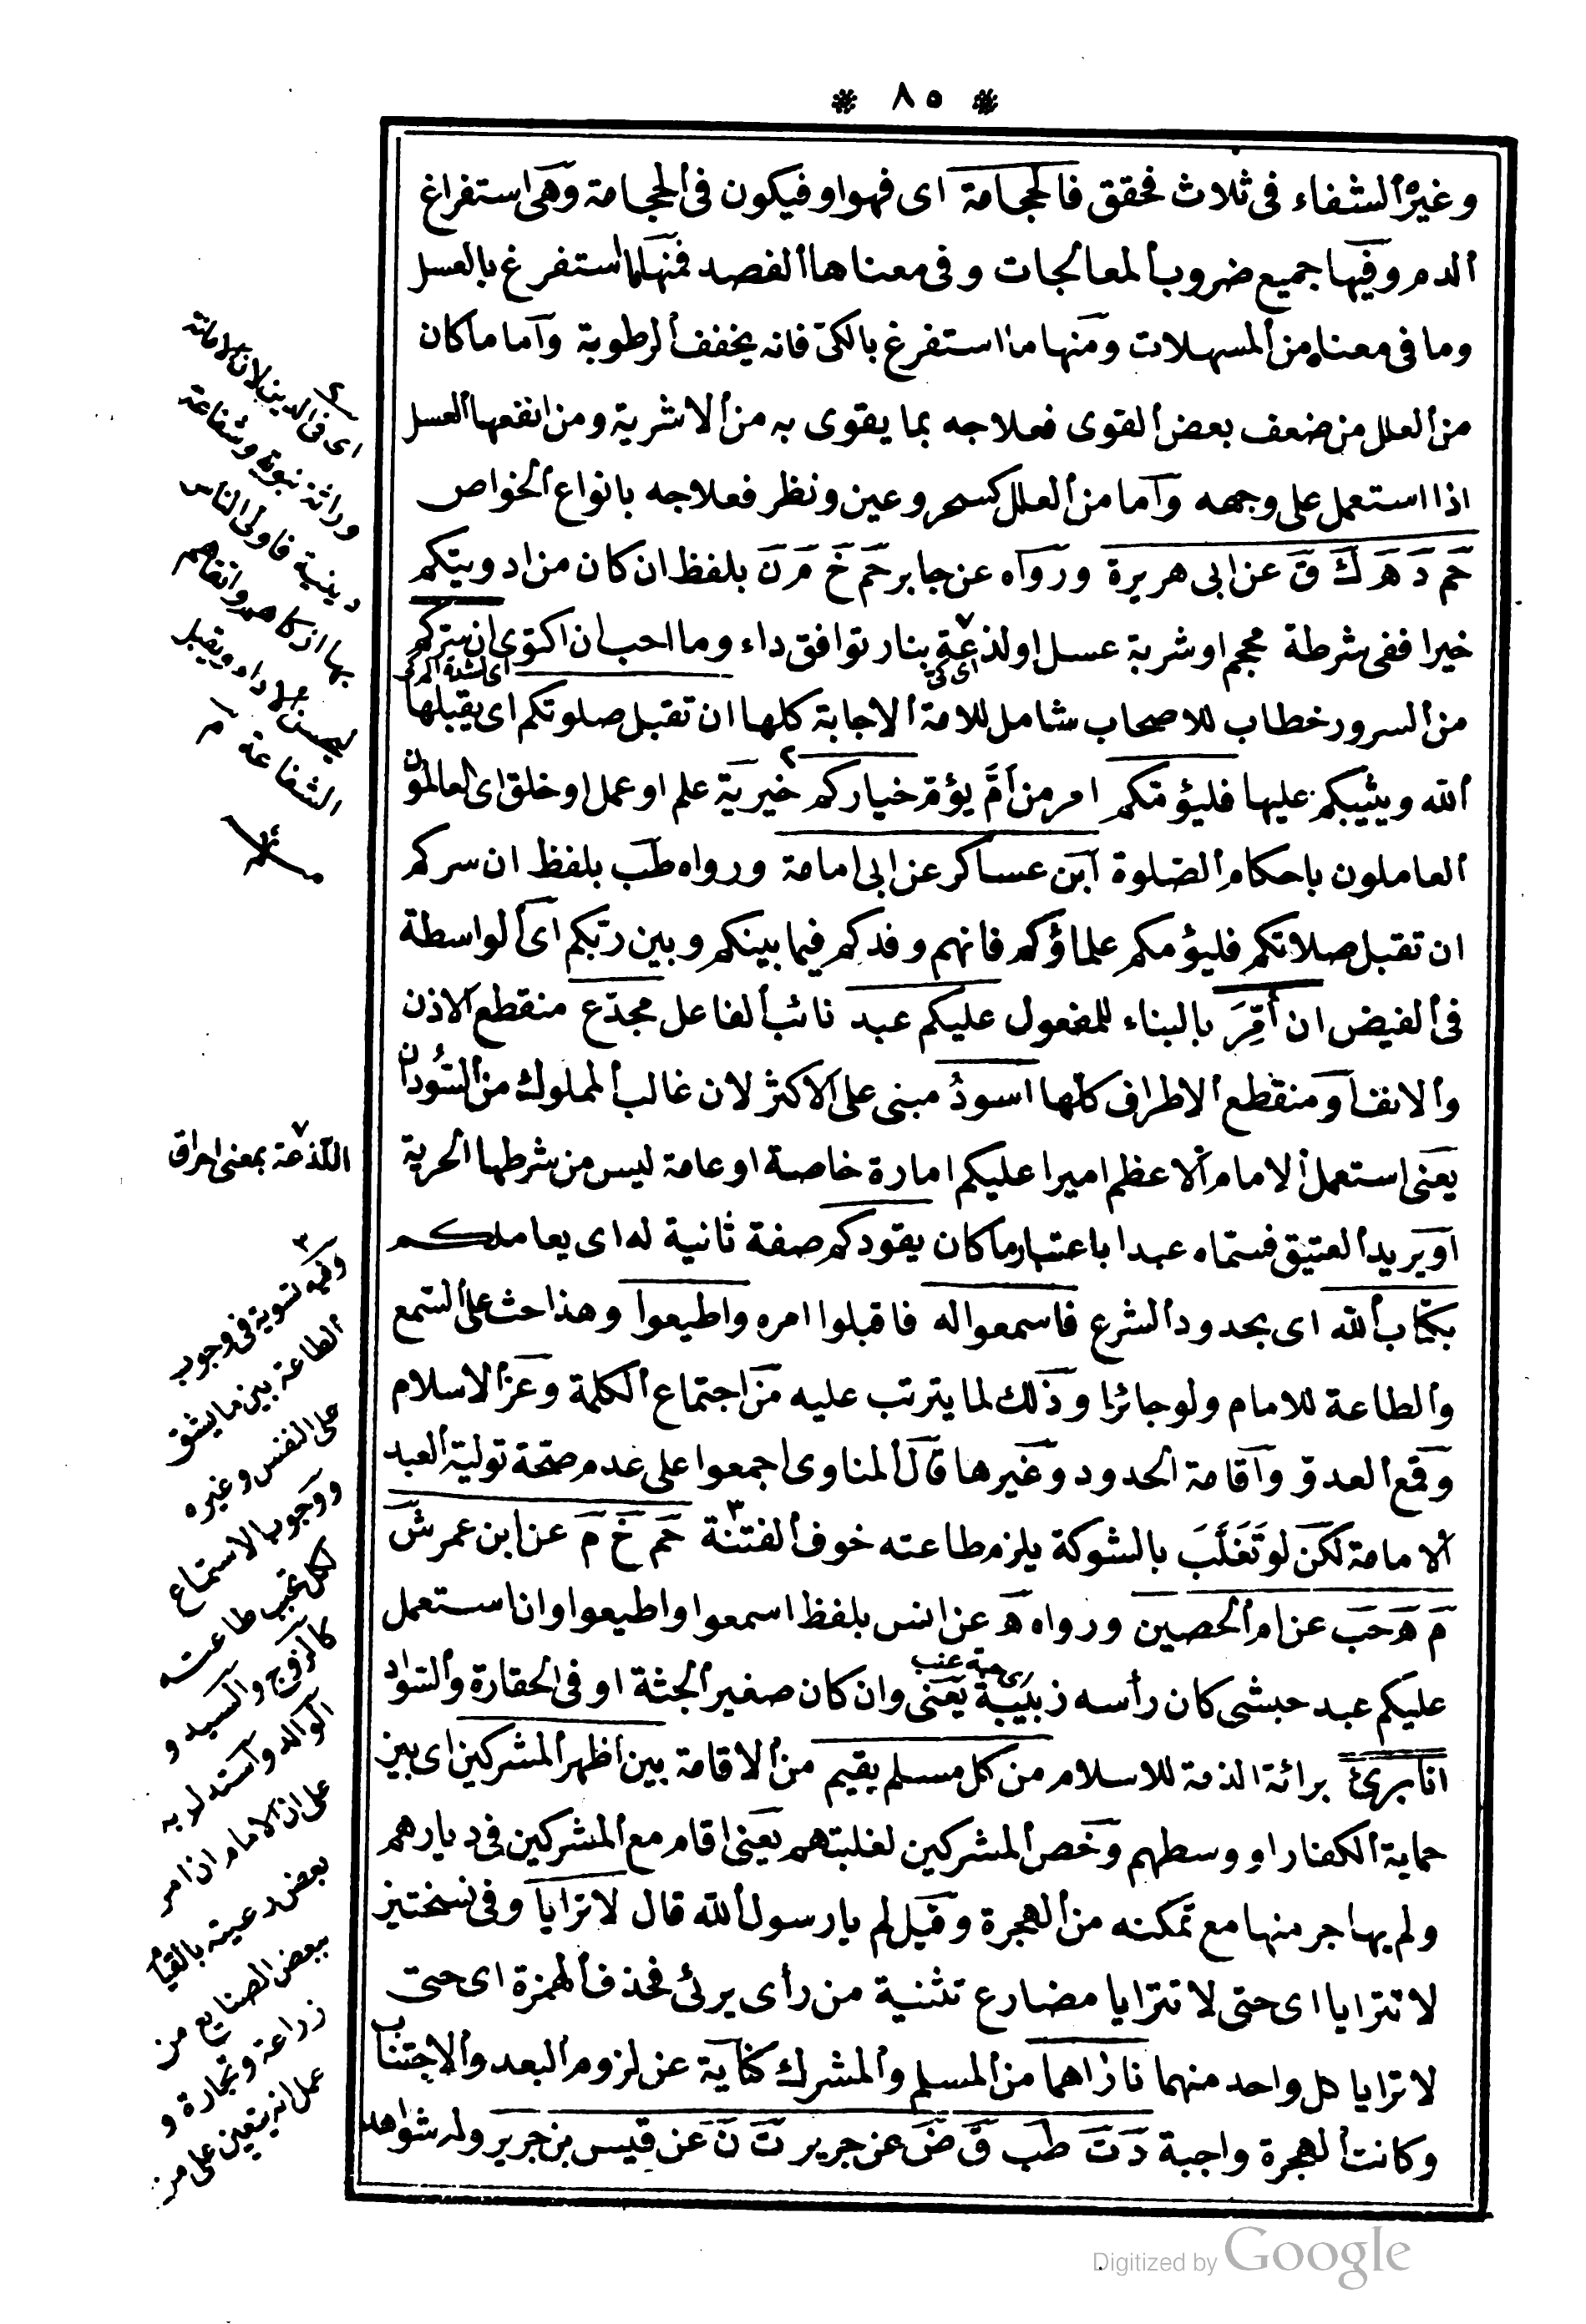 * ٨٥ *
وغيره الشفاء فى ثلاث فحقق فالحجامة اى فهو او فيكون فى الحجامة وهى استفراغ
الدم وفيها جميع ضروب المعالجات وفى معناها الفصد فمنها ما استفرغ بالعسل
وما فى معناه من المسهلات ومنها ما استفرغ بالكى فانه يخفف الرطوبة واما ما كان
من العلل من ضعف بعض القوى فعلاجه بما يقوى به من الاشربة ومن انفعها العسل
اذا استعمل على وجهه واما من العلل كسحر وعين ونظر فعلاجه بانواع الخواص
حم د ه ك ق عن ابى هريرة ورواه عن جابر حم خ م ن بلفظ ان كان من ادويتكم
خيرا ففى شرطة محجم او شربة عسل او لذعة بنار توافق داء وما احب ان اكتوى ان سركم
اى كى
من السرور خطاب للاصحاب شامل للامة الاجابة كلها ان تقبل صلوتكم اى يقبلها
الله ويثيبكم عليها فليؤمكم امر من أمَّ يؤم خياركم خيرية علم او عمل او خلق اى العالمون
العاملون باحكام الصلوة ابن عساكر عن ابى امامة ورواه طب بلفظ ان سركم
ان تقبل صلاتكم فليؤمكم علماؤكم فانهم وفدكم فيما بينكم وبين ربكم اى الواسطة
فى الفيض ان أُمِّرَ بالبناء للمفعول عليكم عبد نائب الفاعل مجدّع منقطع الاذن
والانف او منقطع الاطراف كلها اسودُ مبنى على الاكثر لان غالب المملوك من السُودان
يعنى استعمل الامام الاعظم اميرا عليكم امارة خاصة او عامة ليس من شرطها الحرية
او يريد العتيق فسماه عبدا باعتبار ما كان يقودكم صفة ثانية له اى يعاملكم
بكتاب الله اى بحدود الشرع فاسمعوا له فاقبلوا امره واطيعوا وهذا حث على السمع
والطاعة للامام ولو جائرا وذلك لما يترتب عليه من اجتماع الكلمة وعز الاسلام
وقمع العدو واقامة الحدود وغيرها قال المناوى اجمعوا على عدم صحة تولية العبد
الامامة لكن لو تَغَلَّبَ بالشوكة يلزم طاعته خوف الفتنة ٣ حم خ م عن ابن عمر ش
م ه حب عن ام الحصين ورواه ه عن انس بلفظ اسمعوا واطيعوا وان استعمل
عليكم عبد حبشى كان رأسه زبيبة يعنى وان كان صغير الجثة او فى الحقارة والسواد
اى حبة عنب
انا برئ برائة الذمة للاسلام من كل مسلم يقيم من الاقامة بين اظهر المشركين اى بين
حماية الكفار او وسطهم وخص المشركين لغلبتهم يعنى اقام مع المشركين فى ديارهم
ولم يهاجر منها مع تمكنه من الهجرة وقيل لم يارسول الله قال لا ترايا وفى نسختين
لا تترايا اى حتى لا تترايا مضارع تثنية من رأى يرئى فحذف الهمزة اى حتى
لا ترايا كل واحد منهما ناراهما من المسلم والمشرك كناية عن لزوم البعد والاجتناب
وكانت الهجرة واجبة د ت طب ق ض عن جرير ت ن عن قيس بن جرير وله شواهد
٢
اى فى الدين لان الامامة
وراثة نبوية وشفاعة
دينية فاولى الناس
بها ازكاهم واتقاهم
الشفاعة م
منه
٧
اللذعة بمعنى احراق
٣
وفيه تسوية فى وجوب
الطاعة بين ما يشق
على النفس وغيره
ووجوب الاستماع
لكل تجب طاعته
كالزوج والسيد و
الوالد واستدلوا به
على ان الامام ان امر
بعض رعيته بالقيام
ببعض الصنايع من
زراعة وتجارة و
عمل انه يتعين على من
Digitized by Google